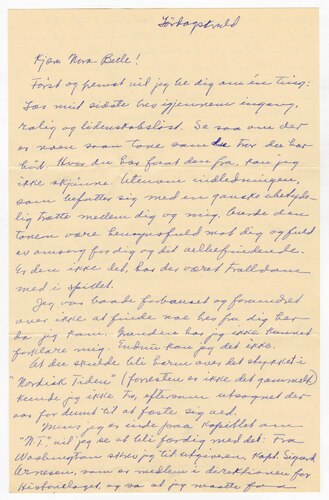 Lördagskveld
Kjære Nora-Belle!
Först og fremst vil jeg be dig om én ting:
Les mit sidste brev igjennem engang,
rolig og lidenskabslöst. Se saa om der
er noen saan tone som du tror du har
hört. Hvor du har faaet den fra, kan jeg
ikke skjönne. Utenom indledningen,
som befatter sig med en ganske ubetyde-
lig trætte mellem dig og mig, burde den
tonen være hensynsfuld mot dig og fuld
av omsorg for dig og dit velbefindende.
Er den ikke det, har det været Trolldom
med i spillet.
Jeg var baade forbauset og forundret
over ikke at finde noe brev fra dig her
da jeg kom. Grunden har jeg ikke kunnet
forklare mig. Endnu kan jeg det ikke.
At du skulde bli harm over det stykket i
"Nordisk Tiden" (foresten er ikke det gammelt)
kunde jeg ikke tro, eftersom utsagnet der
var for dumt til at fæste sig ved.
Mens jeg er inde paa kapitlet om
"N.T." vil jeg se at bli færdig med det: Fra
Washington skrev jeg til utgiveren, Kapt. Sigurd
Arnesen, som er medlem i direktionen for
Historielaget, og sa at jeg maatte faa